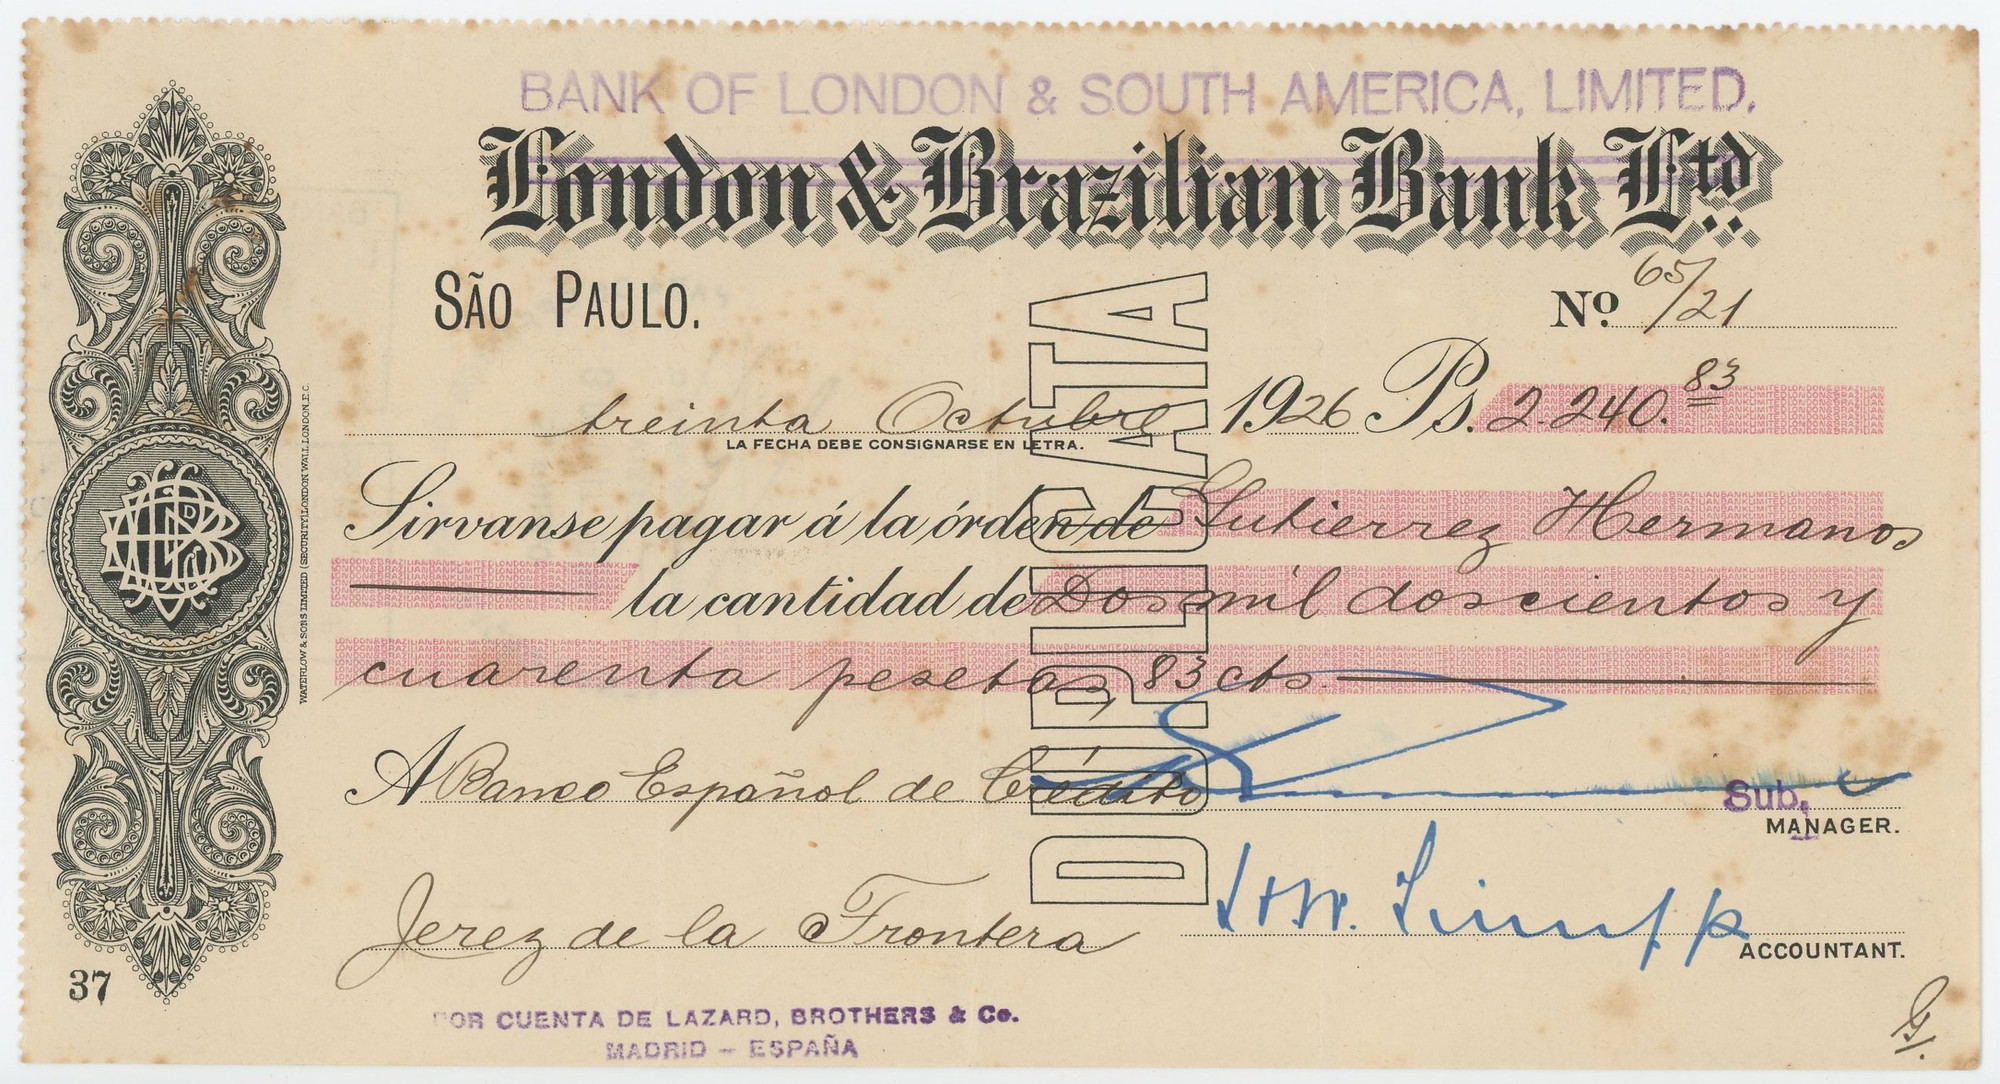 BANK OF LONDON & SOUTH AMERICA, LIMITED.
London & Brazilian Bank Ltd.
SÃO PAULO.
No. 65/21
treinta Octubre 1926 Ps. 2.240.83
LA FECHA DEBE CONSIGNARSE EN LETRA.
Sirvanse pagar á la órden de Gutierrez Hermanos
la cantidad de Dos mil doscientos y
cuarenta pesetas, 83 cts.
A Banco Español de Crédito
Sub.
MANAGER.
Jerez de la Frontera
ACCOUNTANT.
37
POR CUENTA DE LAZARD, BROTHERS & Co.
MADRID – ESPAÑA
G.
DUPLICATA
WATERLOW & SONS LIMITED (SECURITY) LONDON WALL, LONDON, E.C.